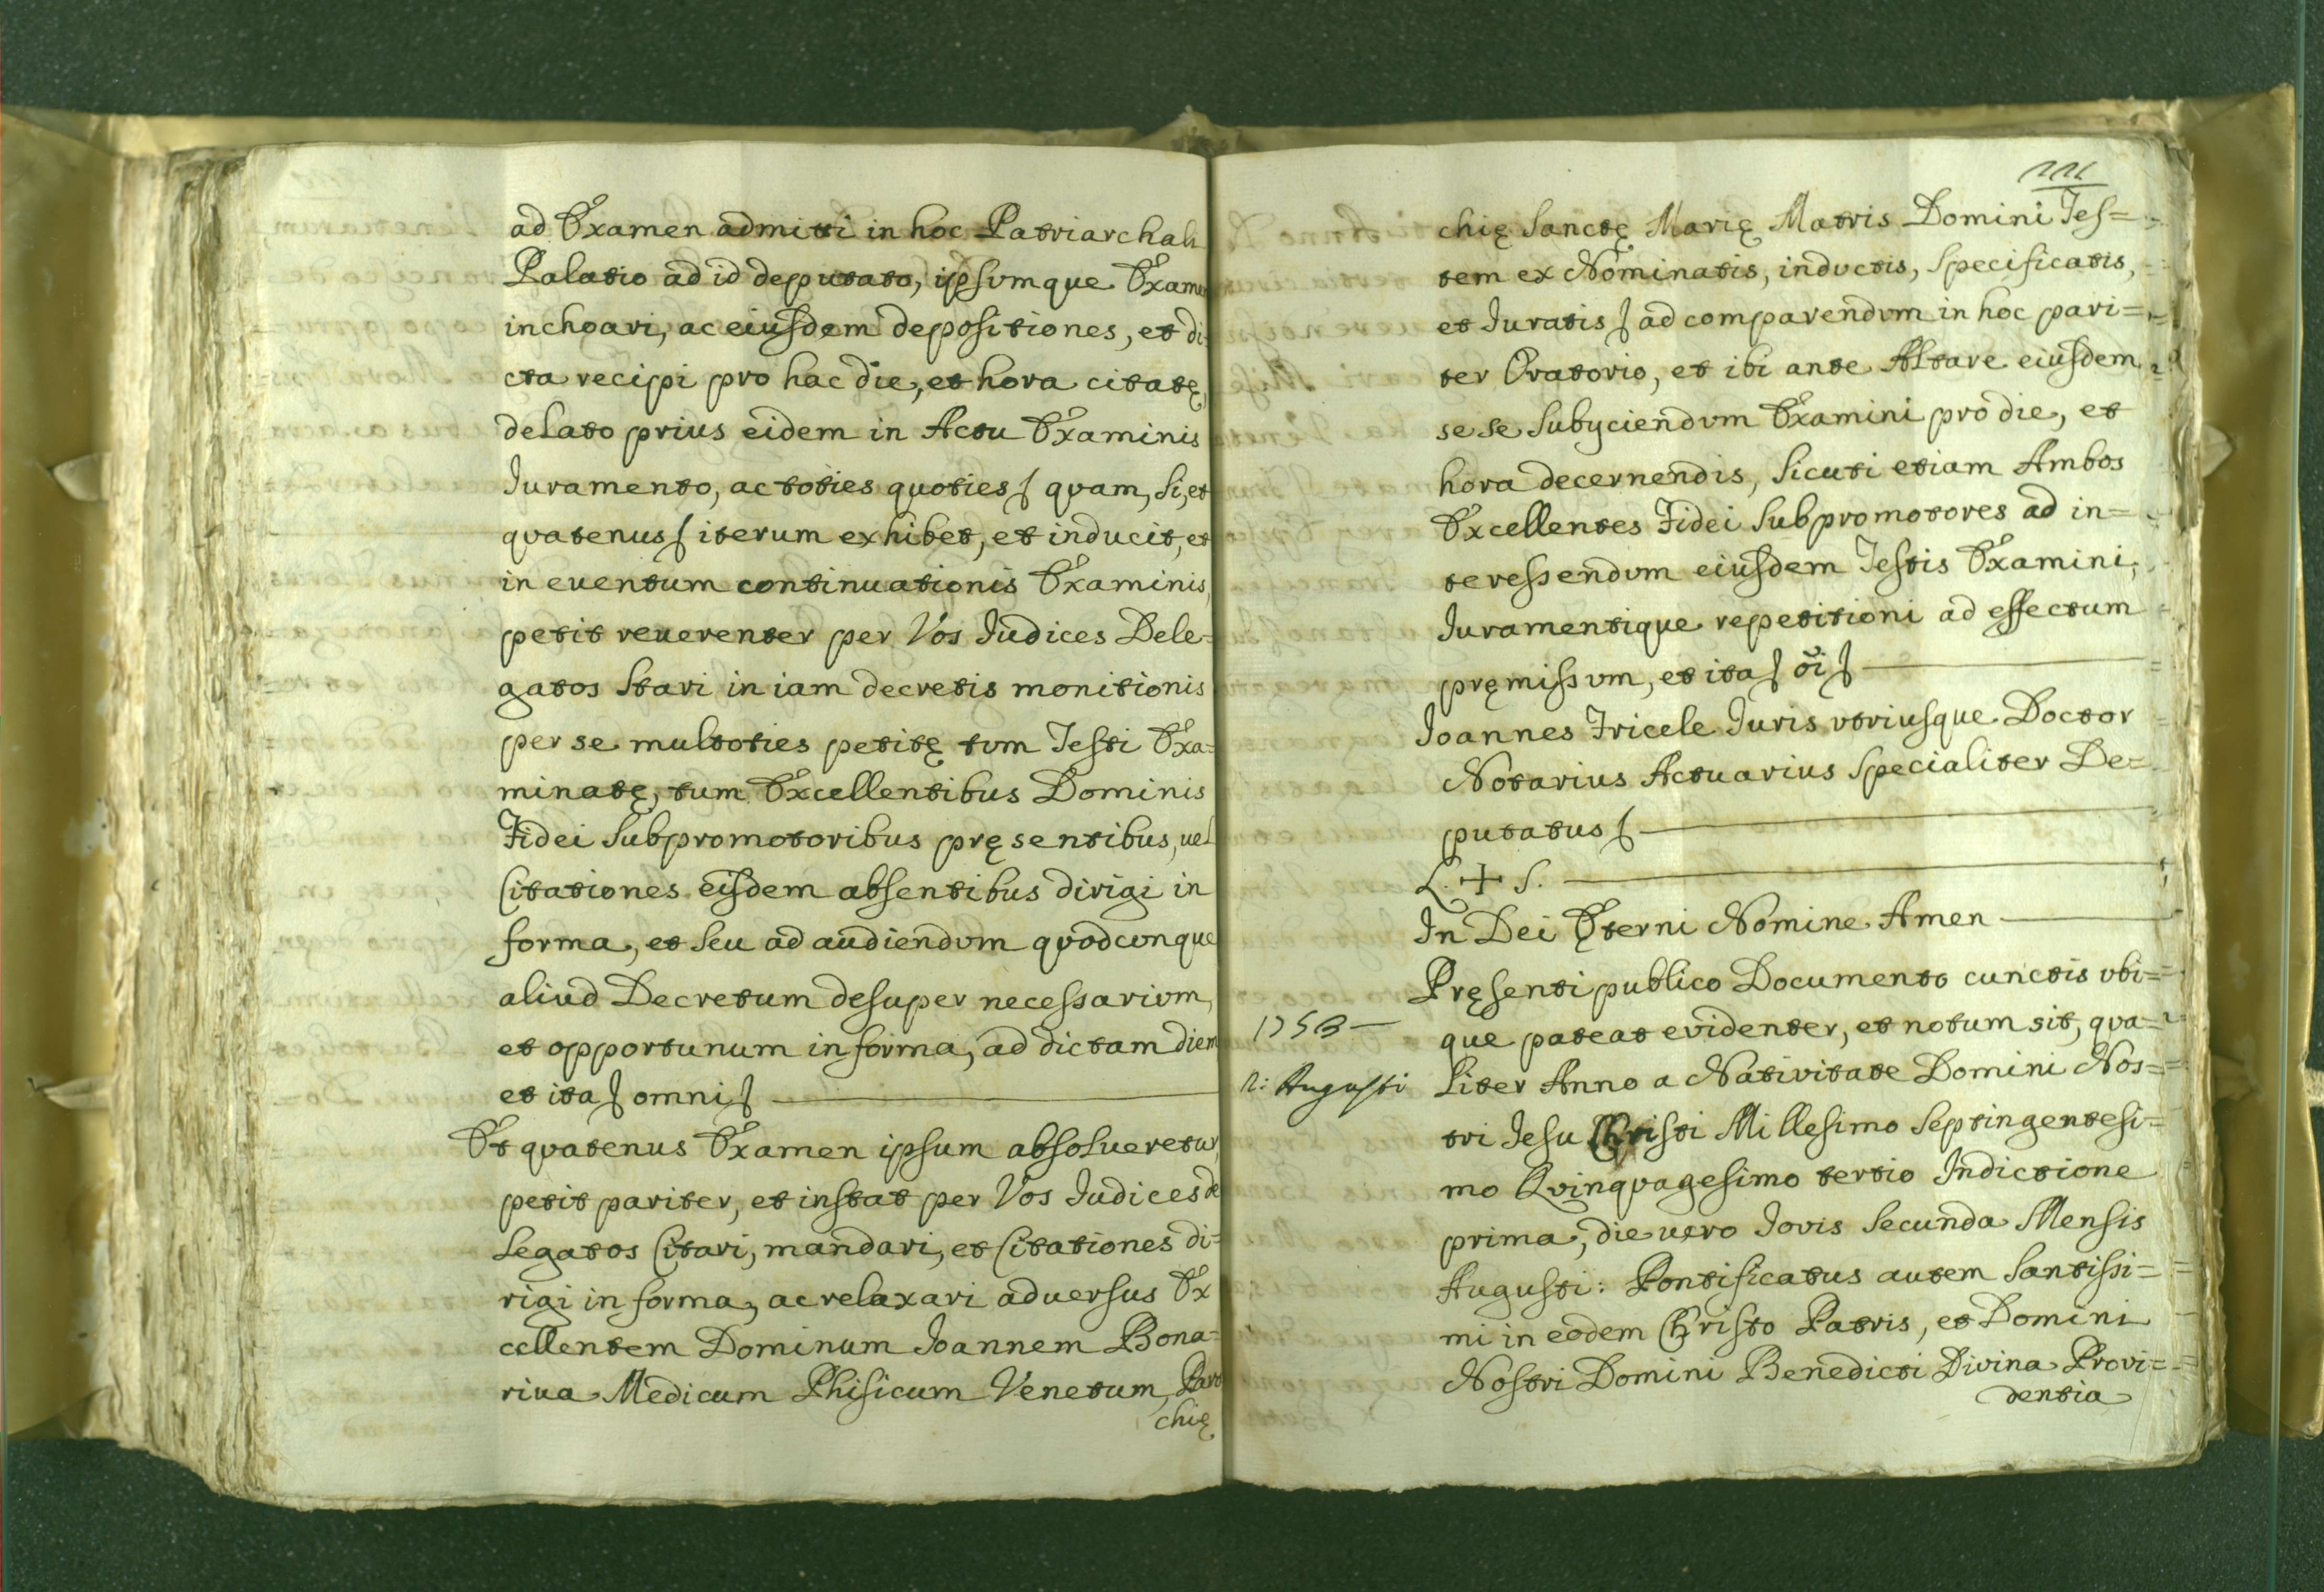 ad Examen admitti in hoc Patriarchali
Palatio ad id deputato, ipsvmque Examen
inchoari, ac eiusdem depositiones, et di-
cta recipi pro hac die, et hora citatę,
delato prius eidem in Actu Examinis
Iuramento, ac toties quoties/ qvam, si, et
qvatenus/ iterum exhibet, et inducit, et
in euentum continuationis Examinis,
petit reuerenter per Vos Iudices Dele-
gatos stari in iam decretis monitionis
per se multoties petitę tvm Testi Exa=
minatę, tum Excellentibus Dominis
Fidei Subpromotoribus pręsentibus, uel
Citationes eisdem absentibus dirigi in
forma, et seu ad audiendvm qvodcvnque
aliud Decretum desuper necessarivm,
et opportunum in forma, ad dictam diem
et ita/ omni/
Et qvatenus Examen ipsum absolueretur,
petit pariter, et instat per Vos Iudices de
legatos Citari, mandari, et Citationes di-
rigi in forma, ac relaxari aduersus Ex
cellentem Dominum Ioannem Bona=
riua Medicum Phisicum Venetum, Paro
chię
111
chię Sanctę Marię Matris Domini Tes=
tem ex Nominatis, indvctis, specificatis,
et Iuratis/ ad comparendvm in hoc pari=
ter Oratorio, et ibi ante Altare eiusdem
se se subyciendvm Examini pro die, et
hora decernendis, sicuti etiam Ambos
Excellentes Fidei Subpromotores ad in=
teressendvm eiusdem Testis Examini,
Iuramentique repetitioni ad effectum
pręmissvm, et ita/ oi/
Ioannes Fricele Iuris vtriusque Doctor
Notarius Actuarius specialiter De=
putatus/
L. + S.
In Dei Ęterni Nomine Amen
Pręsenti publico Documento cunctis vbi=
1753
que pateat evidenter, et notum sit, qva=
2: Augusti
liter Anno a Nativitate Domini Nos=
tri Iesu Christi Millesimo septingentesi=
mo Qvinqvagesimo tertio Indictione
prima, die uero Iovis secunda Mensis
Augusti: Pontificatus autem Santissi=
mi in eodem Christo Patris, et Domini
Nostri Domini Benedicti Divina Provi=
dentia